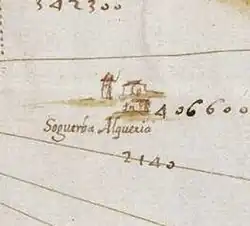 342300
406600
Soguerba Alqueria
2140